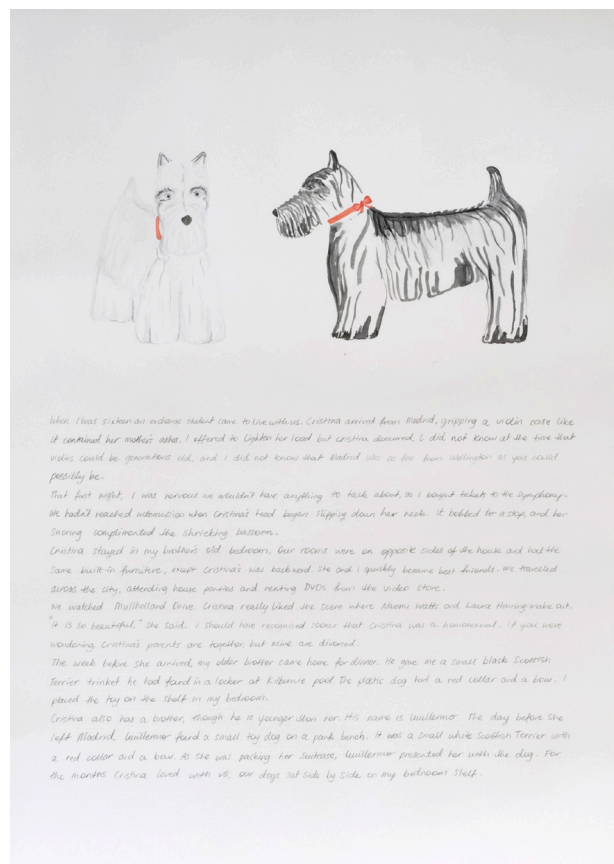 When I was sixteen an exchange student came to live with us. Cristina arrived from Madrid, gripping a violin case like
it contained her mother's ashes. I offered to lighten her load but Cristina demurred. I did not know at the time that
violins could be generations old, and I did not know that Madrid was as far from Wellington as you could
possibly be.
That first night, I was nervous we wouldn't have anything to talk about, so I bought tickets to the Symphony.
We hadn't reached intermission when Cristina's head began slipping down her neck. It bobbed to a stop, and her
snoring complimented the shrieking bassoon.
Cristina stayed in my brother's old bedroom. Our rooms were on opposite sides of the house and had the
same built-in furniture, except Cristina's was backward. She and I quickly became best friends. We travelled
across the city, attending house parties and renting DVDs from the video store.
We watched Mullholland Drive. Cristina really liked the scene where Naomi Watts and Laura Harring make out.
"It is so beautiful," she said. I should have recognised sooner that Cristina was a homosexual. If you were
wondering, Cristina's parents are together, but mine are divorced.
The week before she arrived, my older brother came home for dinner. He gave me a small black Scottish
Terrier trinket he had found in a locker at Kilbirnie pool. The plastic dog had a red collar and a bow. I
placed the toy on the shelf in my bedroom.
Cristina also has a brother, though he is younger than her. His name is Guillermo. The day before she
left Madrid, Guillermo found a small toy dog on a park bench. It was a small white Scottish Terrier with
a red collar and a bow. As she was packing her suitcase, Guillermo presented her with the dog. For
the months Cristina lived with us, our dogs sat side by side on my bedroom shelf.